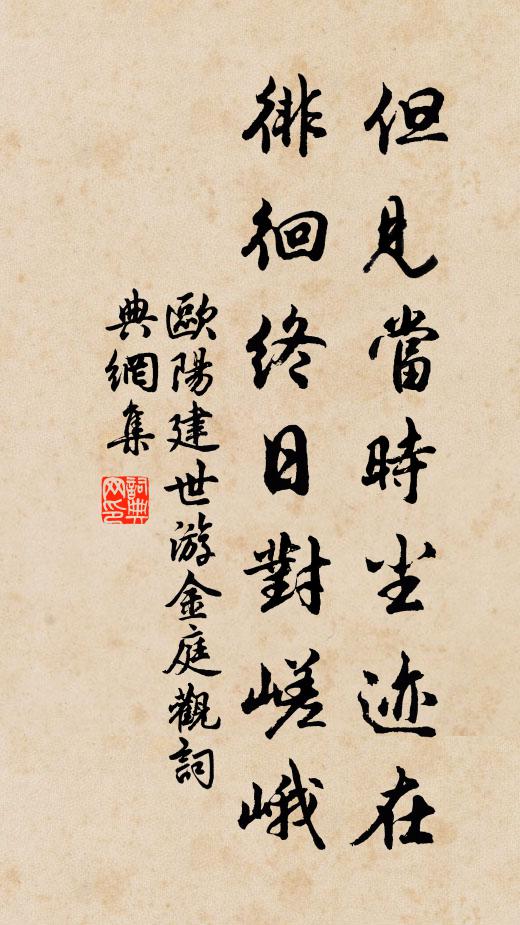 但見當時尘迹在
徘徊終日對嵯峨
歐陽建世游金庭觀詞
典網集
詞典
网印